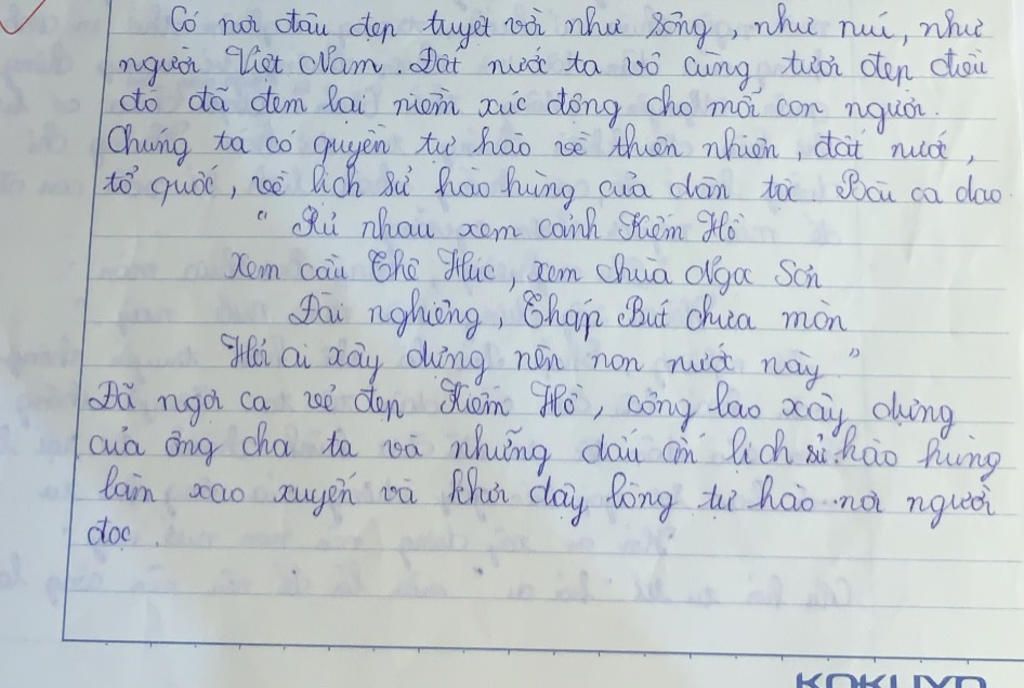 Có nơi đâu đẹp tuyệt vời như sông, như núi, như
người Việt Nam. Đất nước ta vô cùng tươi đẹp điều
đó đã đem lại niềm xúc động cho mỗi con người.
Chúng ta có quyền tự hào về thiên nhiên, đất nước,
tổ quốc, về lịch sử hào hùng của dân tộc. Bài ca dao
" Rủ nhau xem cảnh Kiếm Hồ
Xem cầu Thê Húc, xem chùa Ngọc Sơn
Đài nghiêng, Tháp Bút chưa mòn
Hỏi ai xây dựng nên non nước này "
Đã ngợi ca vẻ đẹp Kiếm Hồ, công lao xây dựng
của ông cha ta và những dấu ấn lịch sử hào hùng
làm xao xuyến và khơi dậy lòng tự hào nơi người
đọc.
KOKUYO